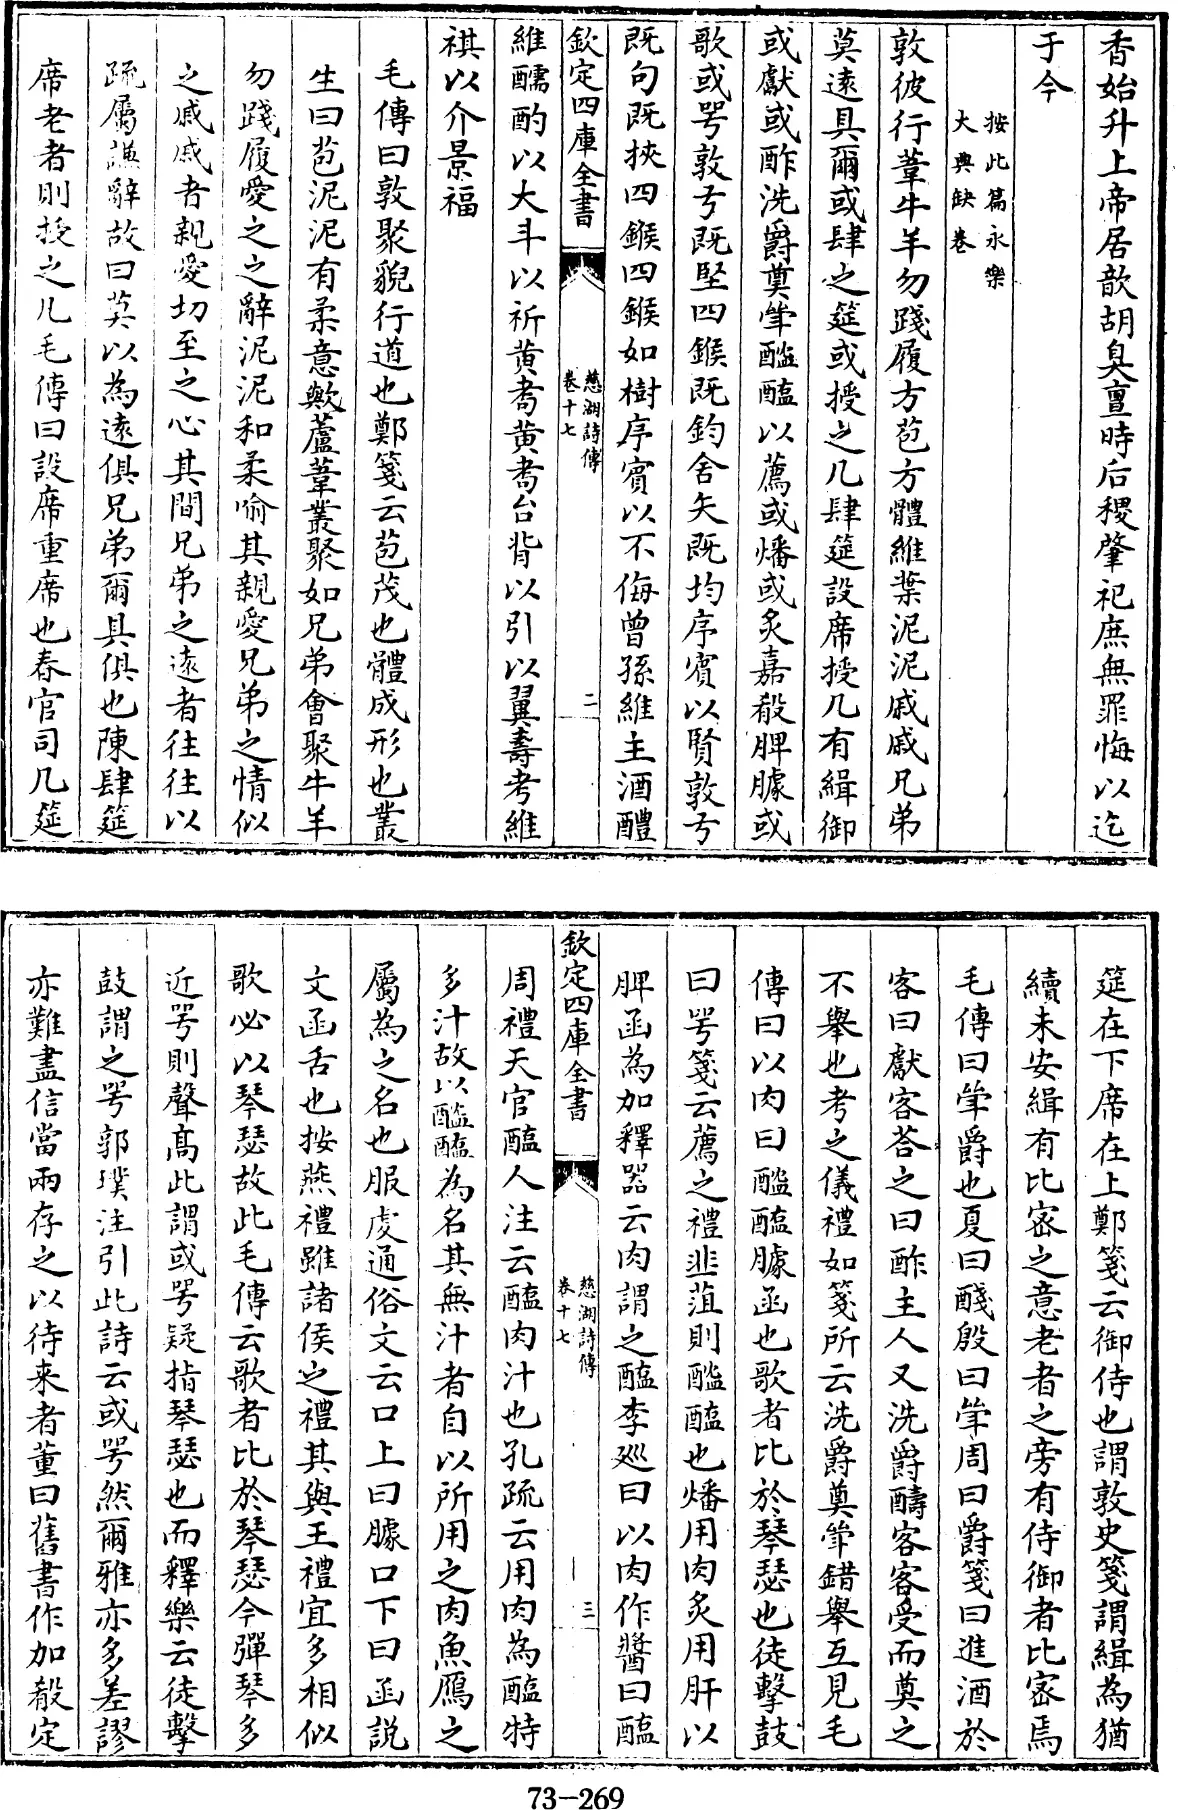 香始升上帝居歆胡臭亶時后稷肇祀庶無罪悔以迄
于今
按此篇永樂
大典缺卷
敦彼行葦牛羊勿踐履方苞方體維葉泥泥戚戚兄弟
莫遠具爾或肆之筵或授之几肆筵設席授几有緝御
或獻或酢洗爵奠斝醓醢以薦或燔或炙嘉殽脾臄或
歌或咢敦弓既堅四鍭既鈞舍矢既均序賓以賢敦弓
既句既挾四鍭四鍭如樹序賓以不侮曾孫維主酒醴
欽定四庫全書
慈湖詩傳
卷十七
二
維醹酌以大斗以祈黃耇黃耇台背以引以翼壽考維
祺以介景福
毛傳曰敦聚貌行道也鄭箋云苞茂也體成形也叢
生曰苞泥泥有柔意歟蘆葦叢聚如兄弟會聚牛羊
勿踐履愛之之辭泥泥和柔喻其親愛兄弟之情似
之戚戚者親愛切至之心其間兄弟之遠者往往以
疏屬謙辭故曰莫以為遠俱兄弟爾具俱也陳肆筵
席老者則授之几毛傳曰設席重席也春官司几筵
筵在下席在上鄭箋云御侍也謂敦史箋謂緝為猶
續未安緝有比宻之意老者之旁有侍御者比宻焉
毛傳曰斝爵也夏曰醆殷曰斝周曰爵箋曰進酒於
客曰獻客荅之曰酢主人又洗爵醻客客受而奠之
不舉也考之儀禮如箋所云洗爵奠斝錯舉互見毛
傳曰以肉曰醓醢臄函也歌者比於琴瑟也徒擊鼓
曰咢箋云薦之禮韭菹則醓醢也燔用肉炙用肝以
脾函為加釋器云肉謂之醢李廵曰以肉作醬曰醢
欽定四庫全書
慈湖詩傳
卷十七
三
周禮天官醢人注云醢肉汁也孔疏云用肉為醢特
多汁故以醓醢為名其無汁者自以所用之肉魚鴈之
屬為之名也服虔通俗文云口上曰臄口下曰函說
文函舌也按燕禮雖諸侯之禮其與王禮宜多相似
歌必以琴瑟故此毛傳云歌者比於琴瑟今彈琴多
近咢則聲髙此謂或咢疑指琴瑟也而釋樂云徒擊
鼓謂之咢郭璞注引此詩云或咢然爾雅亦多差謬
亦難盡信當兩存之以待来者董曰舊書作加殽定
73-269